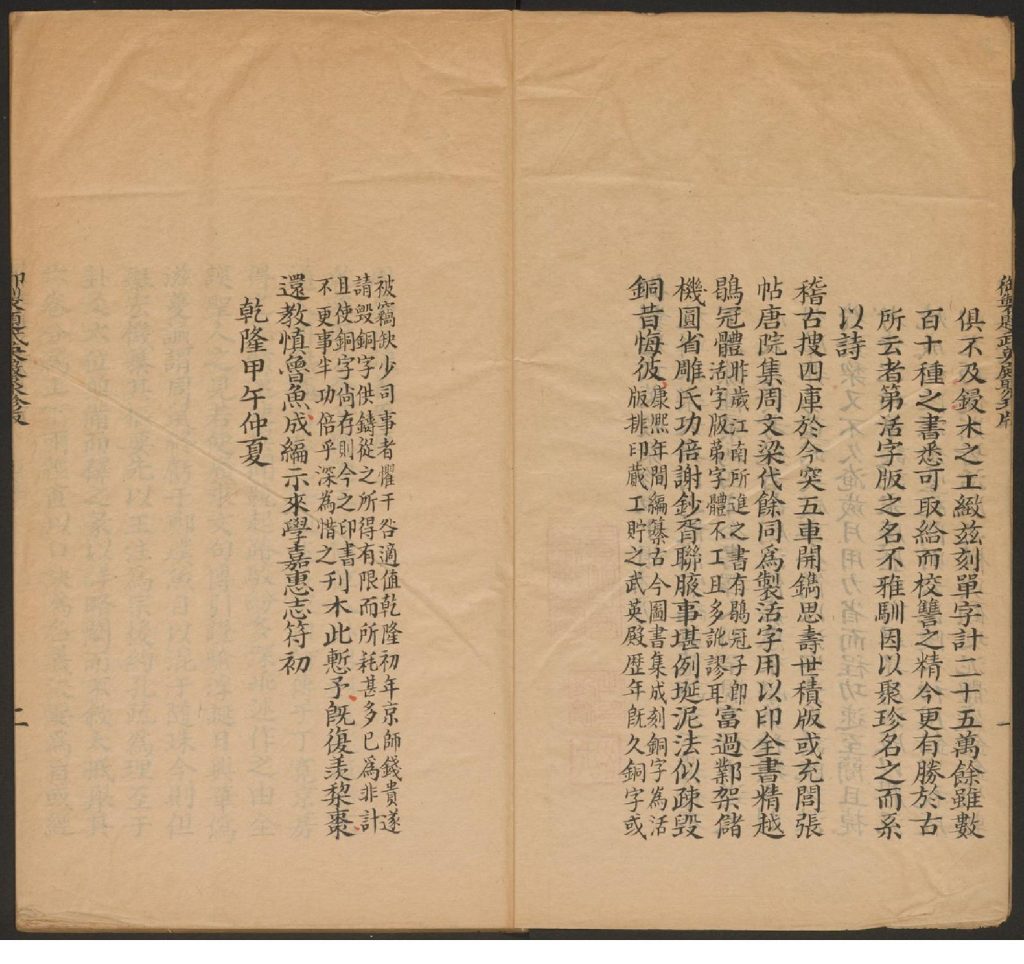 御製題武英殿聚珍版
一
俱不及鋟木之工緻兹刻單字計二十五萬餘雖數
百十種之書悉可取給而校讐之精今更有勝於古
所云者第活字版之名不雅馴因以聚珍名之而系
以詩
稽古搜四庫於今突五車開鐫思壽世積版或充閭張
帖唐院集周文梁代餘同爲製活字用以印全書精越
鶡冠體昨歲江南所進之書有鶡冠子即活字版第字體不工且多訛謬耳富過鄴架儲
機圓省雕氏功倍謝鈔胥聯腋事堪例埏泥法似疎毁
銅昔悔彼康熙年間編纂古今圖書集成刻銅字爲活
版排印蕆工貯之武英殿歴年旣久銅字或
被竊缺少司事者懼干咎適值乾隆初年京師錢貴遂
請毀銅字供鑄從之所得有限而所耗甚多已為非計
且使銅字尚存則今之印書
不更事半功倍乎深為惜之刊木此慙予旣復羨棃棗
還教慎魯魚成編示來學嘉惠志符初
乾隆甲午仲夏
二